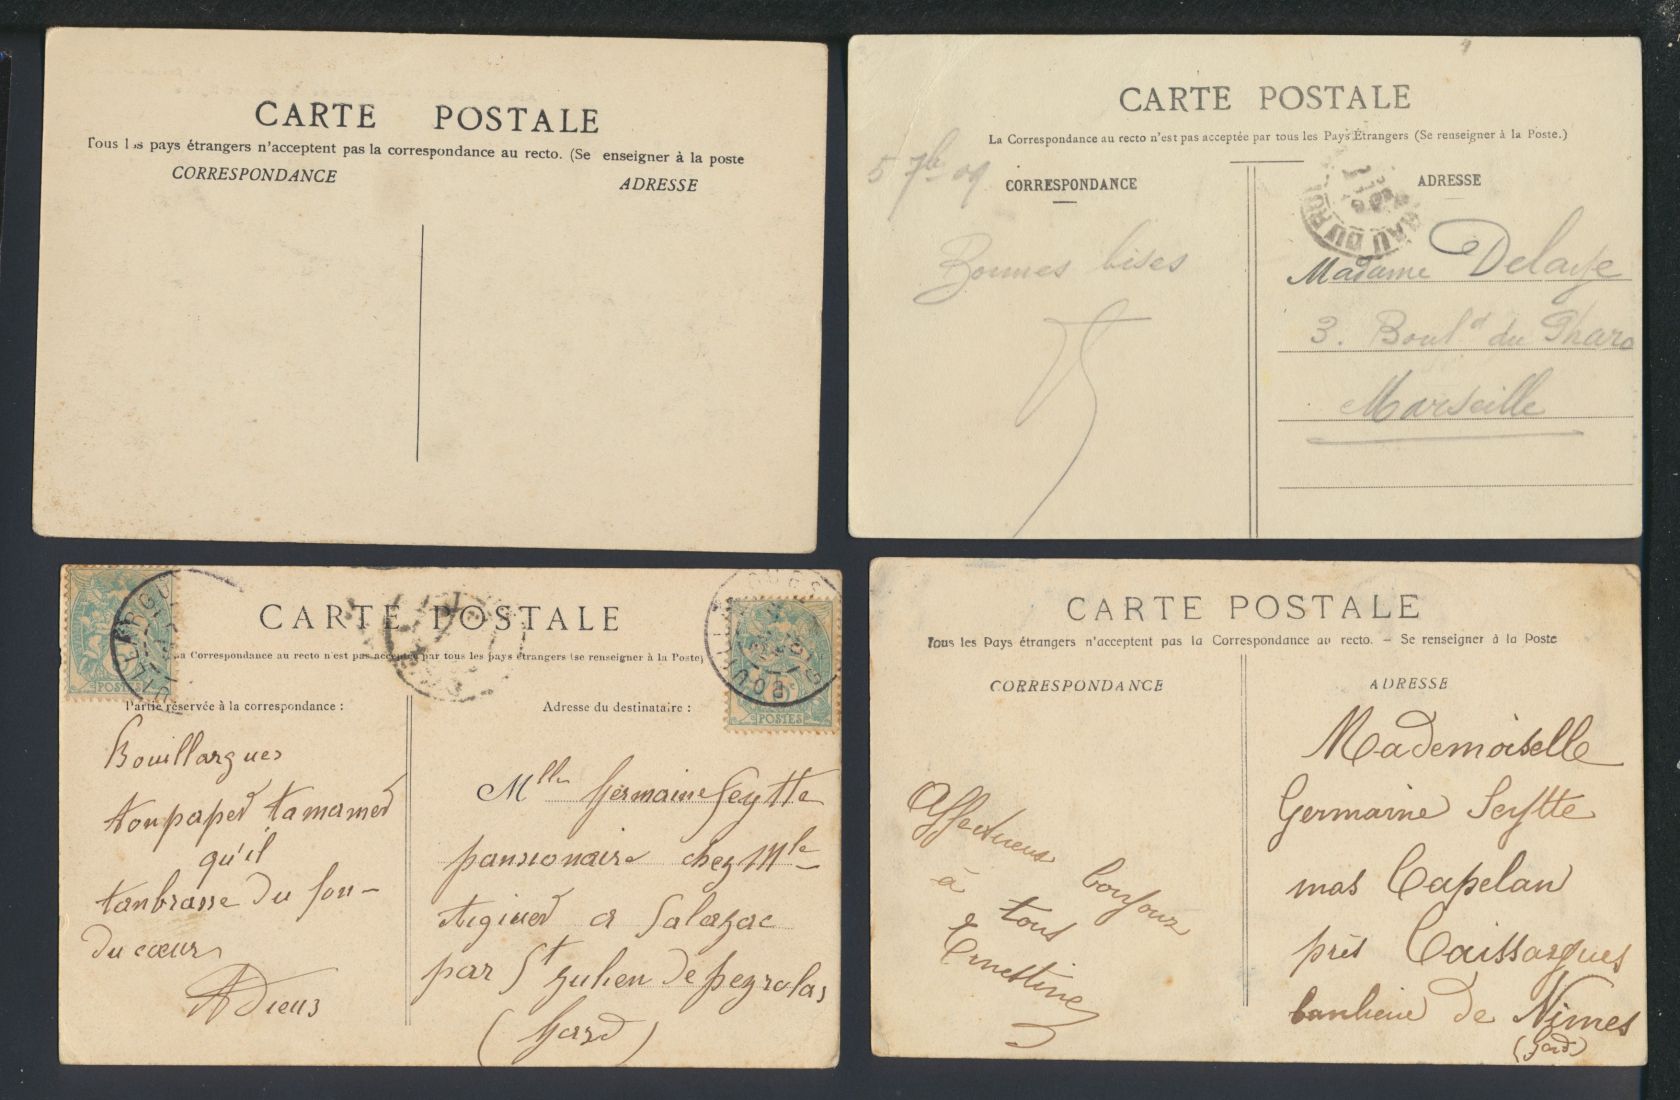 CARTE POSTALE
Tous les pays étrangers n'acceptent pas la correspondance au recto. (Se enseigner à la poste
CORRESPONDANCE ADRESSE
CARTE POSTALE
La Correspondance au recto n'est pas acceptée par tous les Pays Étrangers (Se renseigner à la Poste.)
5 7be 09
CORRESPONDANCE
Bonnes bises
ADRESSE
GRAU DU ROI
Madame Delaye
3. Bould du Pharo
Marseille
CARTE POSTALE
La Correspondance au recto n'est pas acceptée par tous les pays étrangers (se renseigner à la Poste)
POSTES
Partie réservée à la correspondance :
Bouillargues
ton paped ta mamed
qu'il
tanbrasse du fon-
du cœur
Adieus
BOUILLARGUES
POSTES
Adresse du destinataire :
Mlle Germaine Seytte
pansionaire chez Mle
a Salazac
par St Julien de pezrolas
(Gard)
CARTE POSTALE
Tous les Pays étrangers n'acceptent pas la Correspondance au recto. - Se renseigner à la Poste
CORRESPONDANCE
Affectueux bonjour
à tous
Ernestine
ADRESSE
Mademoiselle
Germaine Seytte
mas Capelan
près Caissargues
banlieue de Nimes
(Gard)